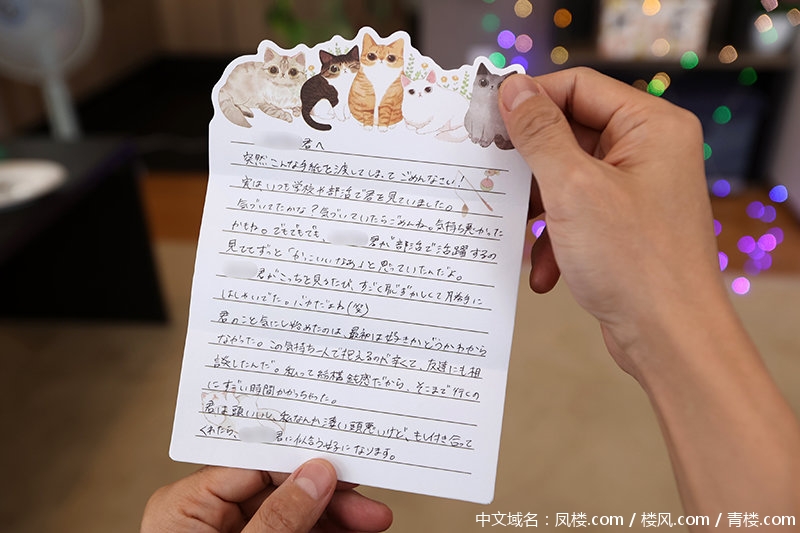 君へ
突然こんな手紙を渡してしまってごめんなさい！
実はいつも学校や部活で君を見ていました。
気づいてたかな？気づいていたらごめんね。気持ち悪かった
かもね。でもでもでも、君が部活で活躍するの
見ててずっと「かっこいいなあ」と思っていたんだよ。
君がこっちを見るたび、すごく恥ずかしくて勝手に
はしゃいでた。バカだよね(笑)
君のこと気にし始めたのは、最初は好きかどうかわから
なかった。この気持ち一人で抱えるのが辛くて、友達にも相
談したんだ。私って結構鈍感だから、そこまで行くの
にすごい時間かかっちゃった。
君は頭いいし、私なんか凄い頭悪いけど、もし付き合って
くれたら、君に似合う女子になります。
中文域名：凤楼.com / 楼风.com / 青楼.com